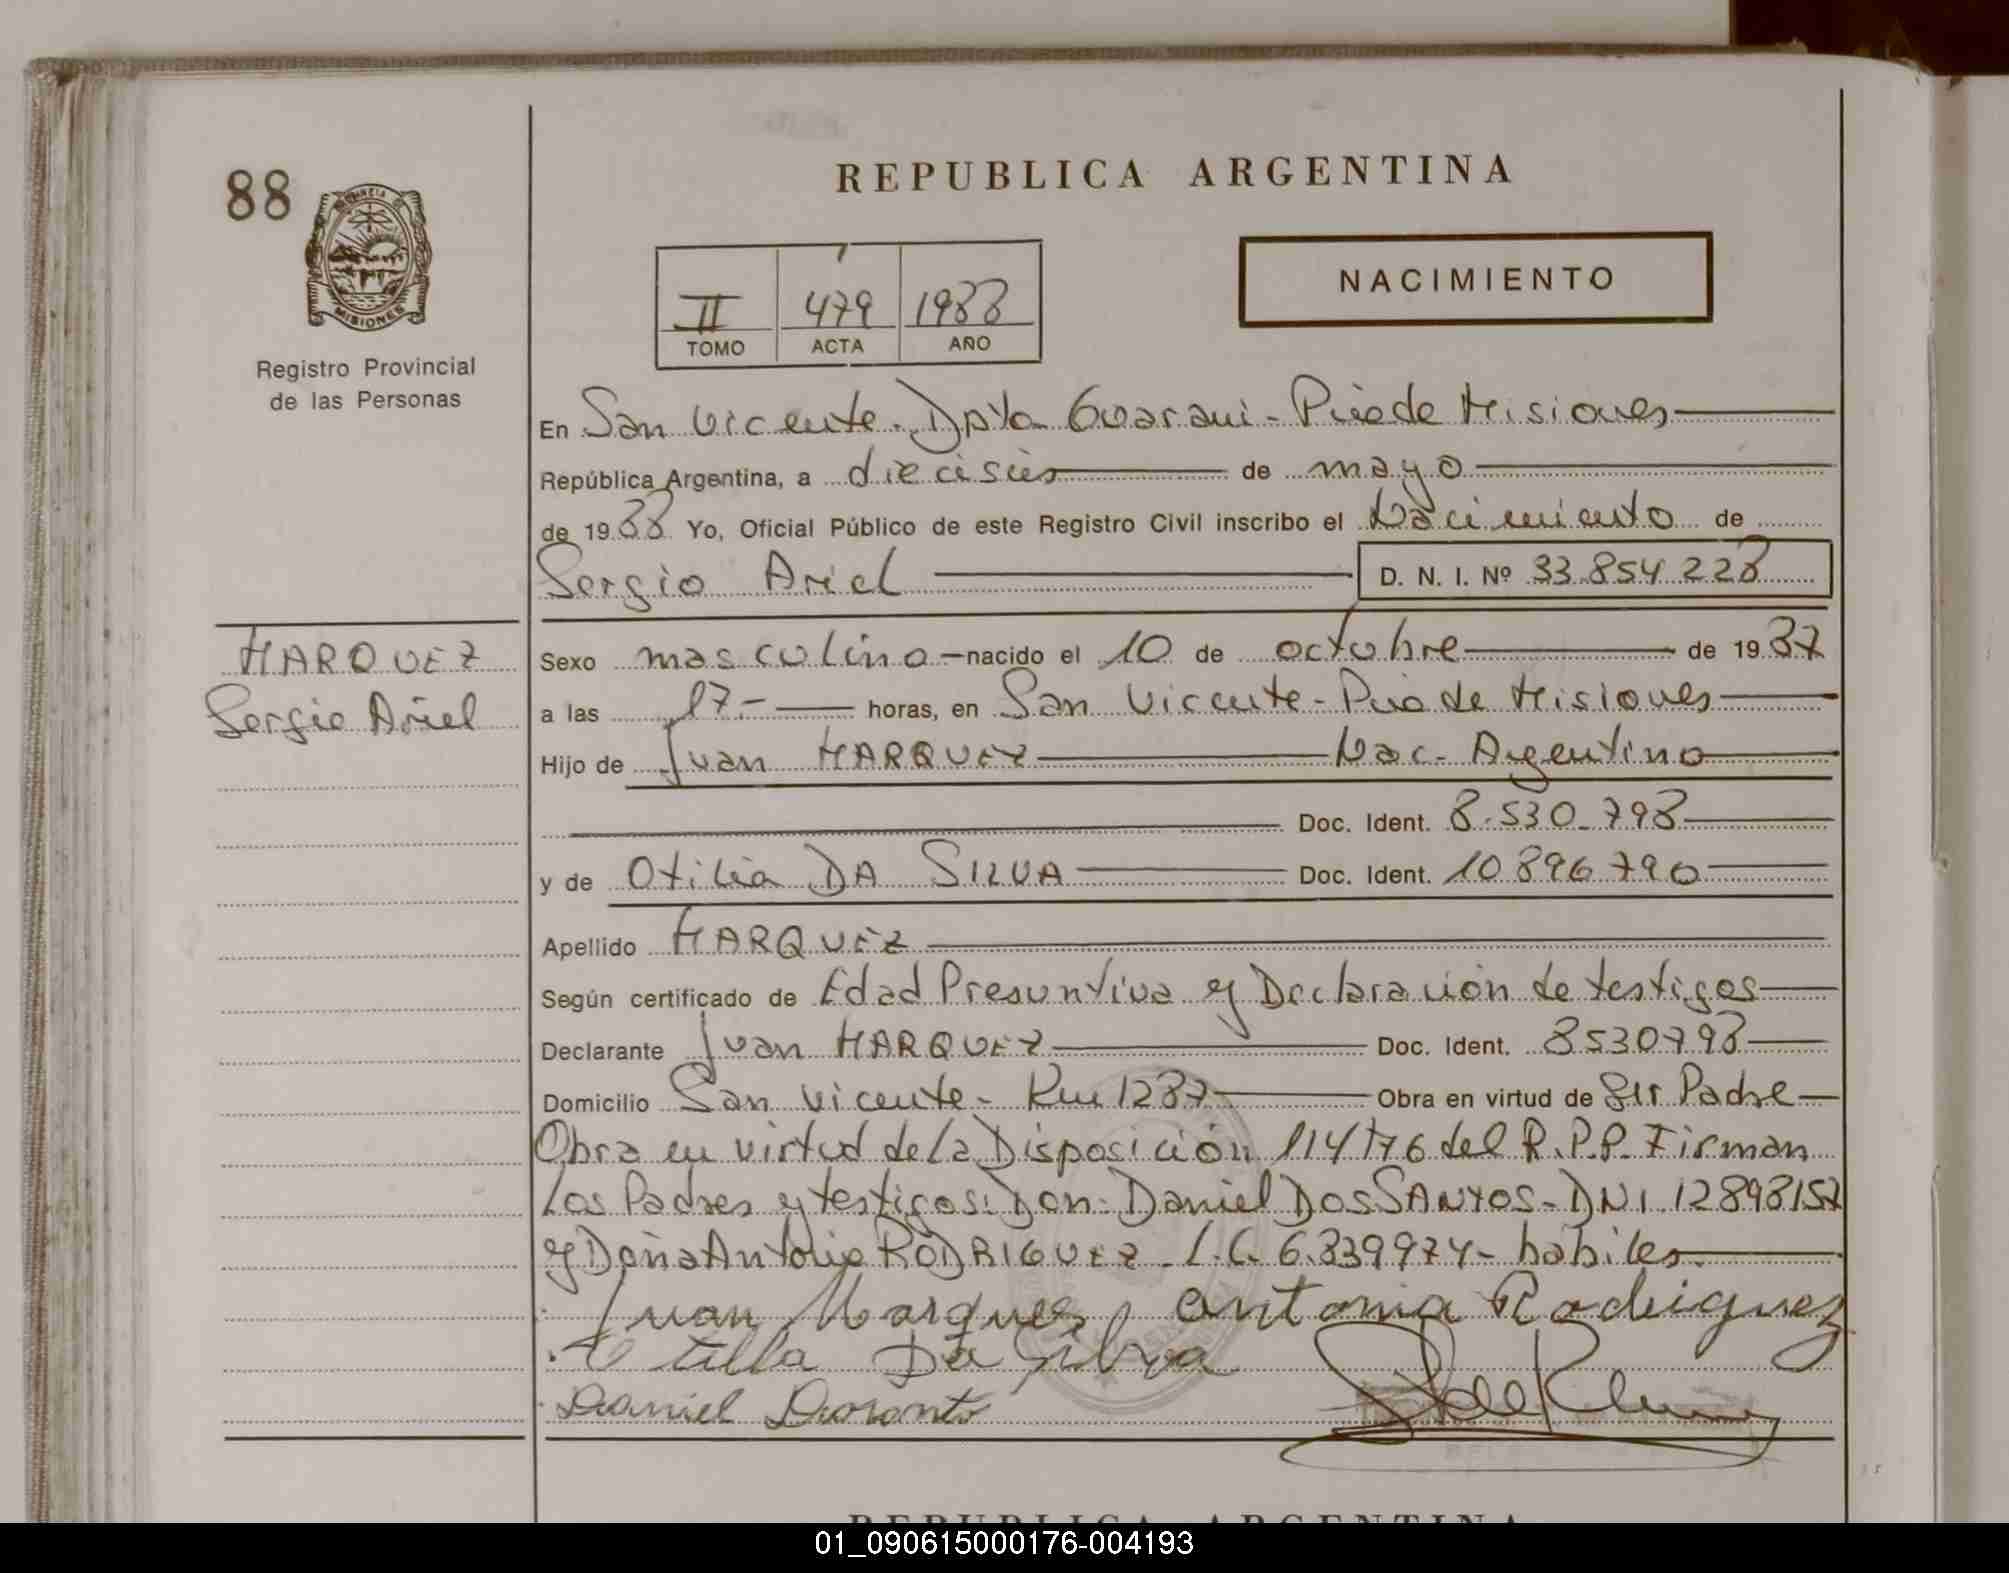 88
PROVINCIA DE
MISIONES
Registro Provincial
de las Personas
REPUBLICA ARGENTINA
II 479 1988
TOMO ACTA AÑO
NACIMIENTO
En San Vicente. Dpto Guarani - Pcia de Misiones
República Argentina, a dieciseis de mayo
de 1988 Yo, Oficial Público de este Registro Civil inscribo el Nacimiento de
Sergio Ariel D. N. I. Nº 33.854.228
MARQUEZ
Sergio Ariel
Sexo masculino - nacido el 10 de octubre de 1987
a las 17.- horas, en San Vicente - Pcia de Misiones
Hijo de Juan MARQUEZ Nac. Argentino
Doc. Ident. 8.530.798
y de Otilia DA SILVA Doc. Ident. 10.896.790
Apellido MARQUEZ
Según certificado de Edad Presuntiva y Declaración de testigos
Declarante Juan MARQUEZ Doc. Ident. 8530798
Domicilio San Vicente - Km 1287 Obra en virtud de Ser Padre
Obra en virtud de la Disposición 114/76 del R.P.P. Firman
Los Padres y testigos: Don: Daniel DOS SANTOS - DNI 12898157
y Doña Antonia RODRIGUEZ - L.C. 6.839974 - habiles.
Juan Marques Antonia Rodriguez
Otilla Da Silva
Daniel
REPUBLICA ARGENTINA
01_090615000176-004193